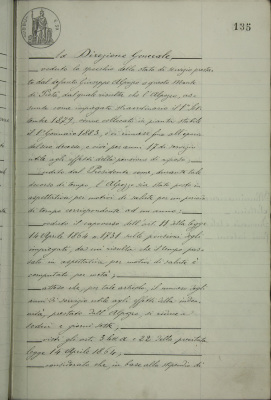 135
La Direzione Generale,
veduto lo specchio dello stato di servizio
dal defunto Giuseppe a questo Monte
di Pietà, dal quale risulta che l'
come impiegato straordinario il 1°
1873, venne collocato in pianta stabile
il 1° Gennaio 1883, e vi rimase fino all'epoca
del suo decesso, e così per anni 17 di servizio
utile agli effetti della pensione di riposo,
veduto dal Presidente come, durante tale
decorso di tempo, l' sia stato posto in
aspettativa per motivi di salute per un periodo
di tempo corrispondente ad un anno;
veduto il capoverso dell'art. 11 della legge
14 Aprile 1864 N° 1731 sulle pensioni degli
impiegati, da cui risulta che il tempo pas-
sato in aspettativa per motivi di salute è
computato per metà;
atteso che, per tale articolo, il numero degli
anni di servizio utile agli effetti della inden-
nità, portato dall' si riduce a
sedici e giorni
visti gli art. 3 e 22 della
legge 14 Aprile 1864,
considerato che, in base allo stipendio di